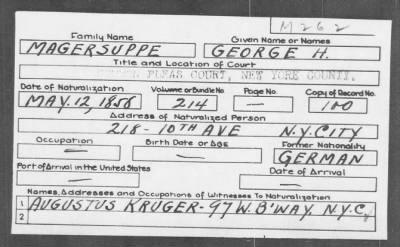 M262
Family Name Given Name or Names
MAGERSUPPE GEORGE H.
Title and Location of Court
PLEAS COURT, NEW YORK COUNTY.
Date of Naturalization Volume or Bundle No Page No. Copy of Record No.
MAY.12,1856 214 — 100
Address of Naturalized Person
218-10TH AVE N.Y.CITY
Occupation Birth Date or Age Former Nationality
— — GERMAN
Port of Arrival in the United States Date of Arrival
— —
Names, Addresses and Occupations of Witnesses To Naturalization
1 AUGUSTUS KRUGER-97 W. B'WAY, N.Y.C.
2